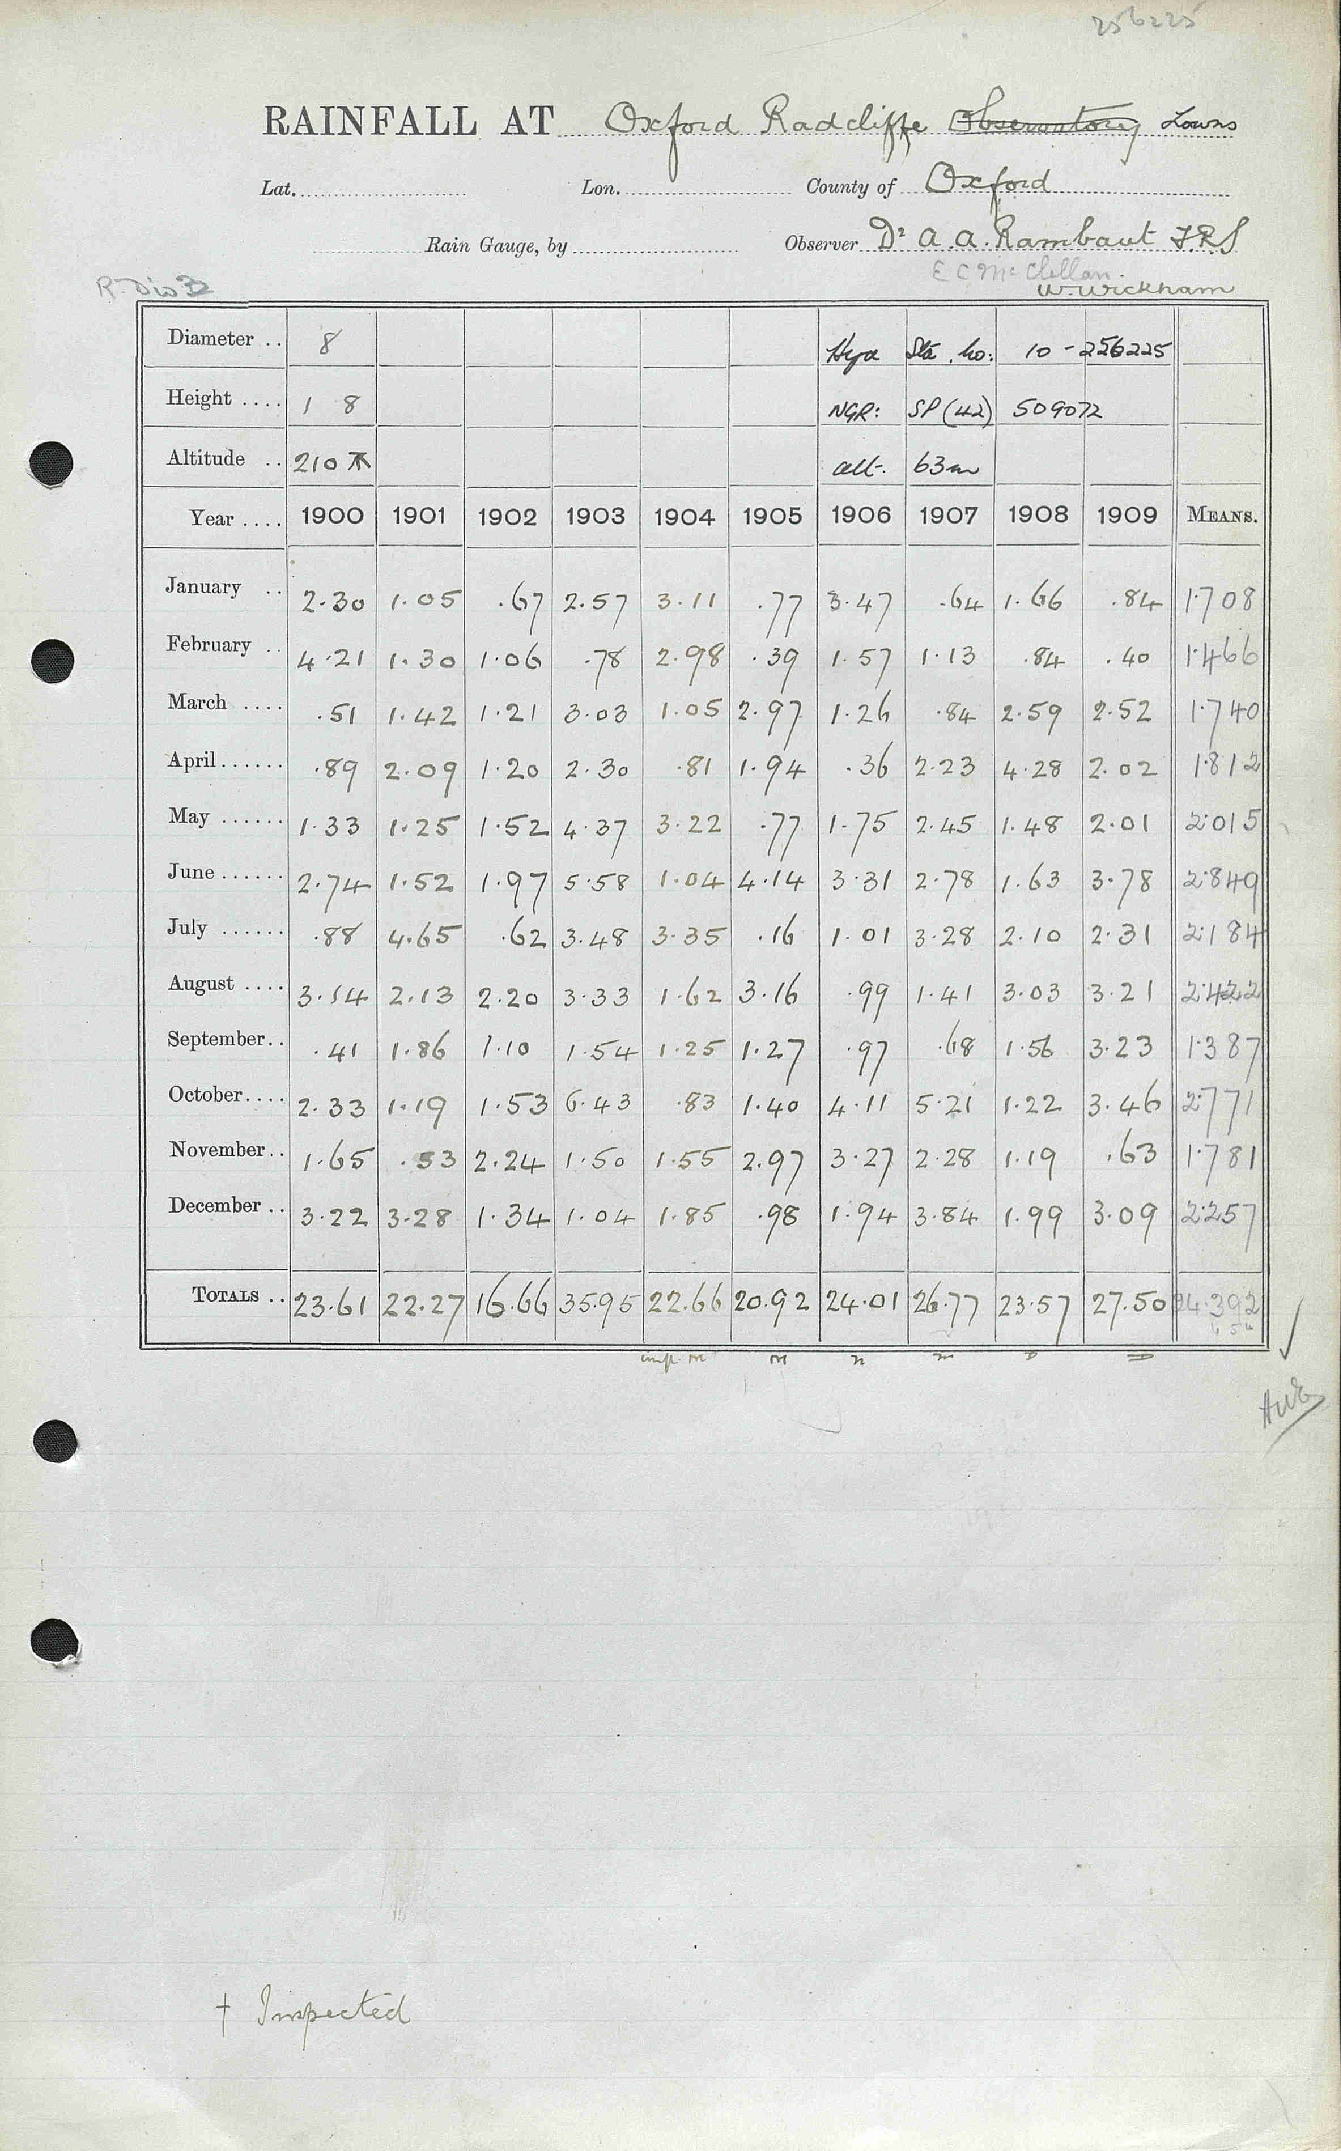 256225
RAINFALL AT Oxford Radcliffe Observatory Lawns
Lat. Lon. County of Oxford
Rain Gauge, by Observer Dr A. A. Rambaut F.R.S
E C McClellan.
R. Dio 3 W. Wickham
Diameter .. 8 Hya Sta. No: 10 - 256225
Height .... 1 8 NGR: SP (42) 509072
Altitude .. 210 alt. 63m
Year .... 1900 1901 1902 1903 1904 1905 1906 1907 1908 1909 MEANS.
January .. 2.30 1.05 .67 2.57 3.11 .77 3.47 .64 1.66 .84 1.708
February .. 4.21 1.30 1.06 .78 2.98 .39 1.57 1.13 .84 .40 1.466
March .... .51 1.42 1.21 3.03 1.05 2.97 1.26 .84 2.59 2.52 1.740
April ...... .89 2.09 1.20 2.30 .81 1.94 .36 2.23 4.28 2.02 1.812
May ...... 1.33 1.25 1.52 4.37 3.22 .77 1.75 2.45 1.48 2.01 2.015
June ...... 2.74 1.52 1.97 5.58 1.04 4.14 3.31 2.78 1.63 3.78 2.849
July ...... .88 4.65 .62 3.48 3.35 .16 1.01 3.28 2.10 2.31 2.184
August .... 3.14 2.13 2.20 3.33 1.62 3.16 .99 1.41 3.03 3.21 2.422
September .. .41 1.86 1.10 1.54 1.25 1.27 .97 .68 1.56 3.23 1.387
October .... 2.33 1.19 1.53 6.43 .83 1.40 4.11 5.21 1.22 3.46 2.771
November .. 1.65 .53 2.24 1.50 1.55 2.97 3.27 2.28 1.19 .63 1.781
December .. 3.22 3.28 1.34 1.04 1.85 .98 1.94 3.84 1.99 3.09 2.257
TOTALS .. 23.61 22.27 16.66 35.95 22.66 20.92 24.01 26.77 23.57 27.50 24.392
† Inspected